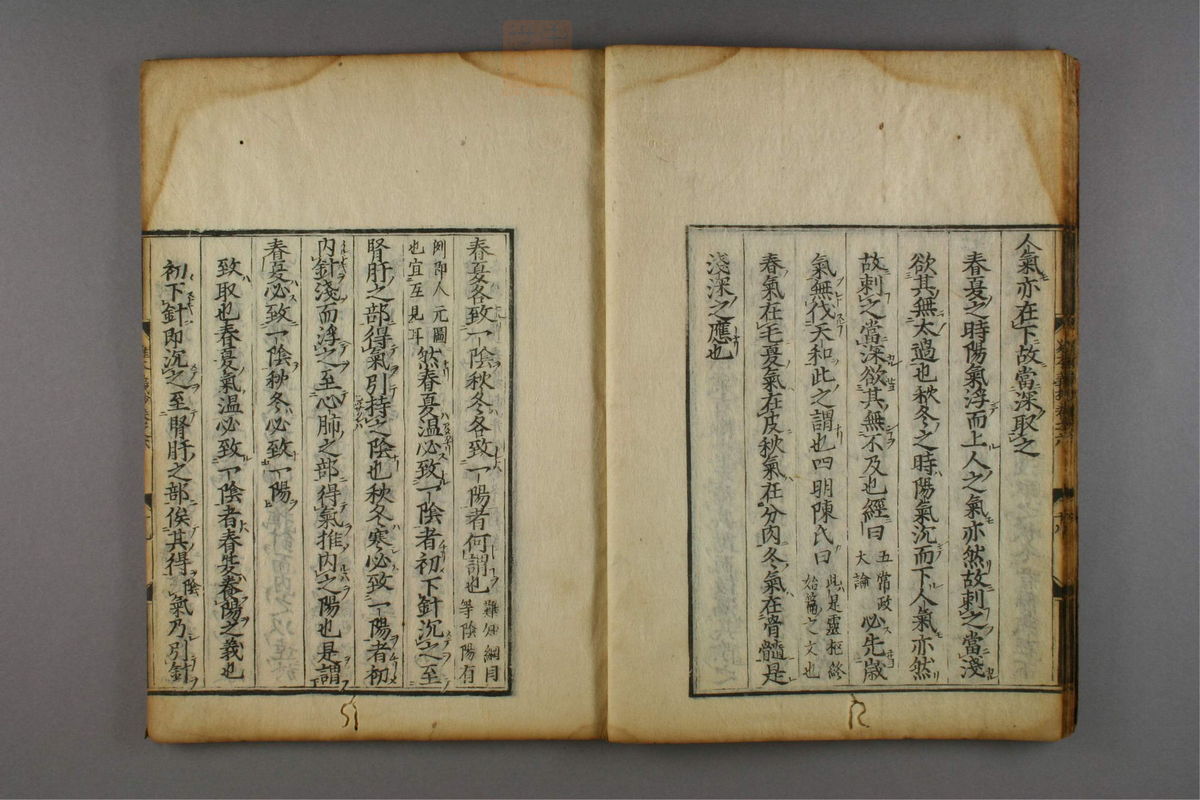 人氣亦在下故當深取之
春夏之時陽氣浮而上人之氣亦然故刺之當淺
欲其無太過也秋冬之時陽氣沉而下人氣亦然
故刺之當深欲其無不及也經曰五常政大論必先歲
氣無伐天和此之謂也四明陳氏曰此是靈樞終始篇之文也
春氣在毛夏氣在皮秋氣在分肉冬氣在骨髓是
淺深之應也
春夏各致一陰秋冬各致一陽者何謂也難知綱目等陰陽有
例即人元圖也宜互見耳然春夏温必致一陰者初下針沉之至
腎肝之部得氣引持之陰也秋冬寒必致一陽者初
内針淺而浮之至心肺之部得氣推内之陽也是謂
春夏必致一陰秋冬必致一陽
致取也春夏氣温必致一陰者春夏養陽之義也
初下針即沉之至腎肝之部俟其得陰氣乃引針